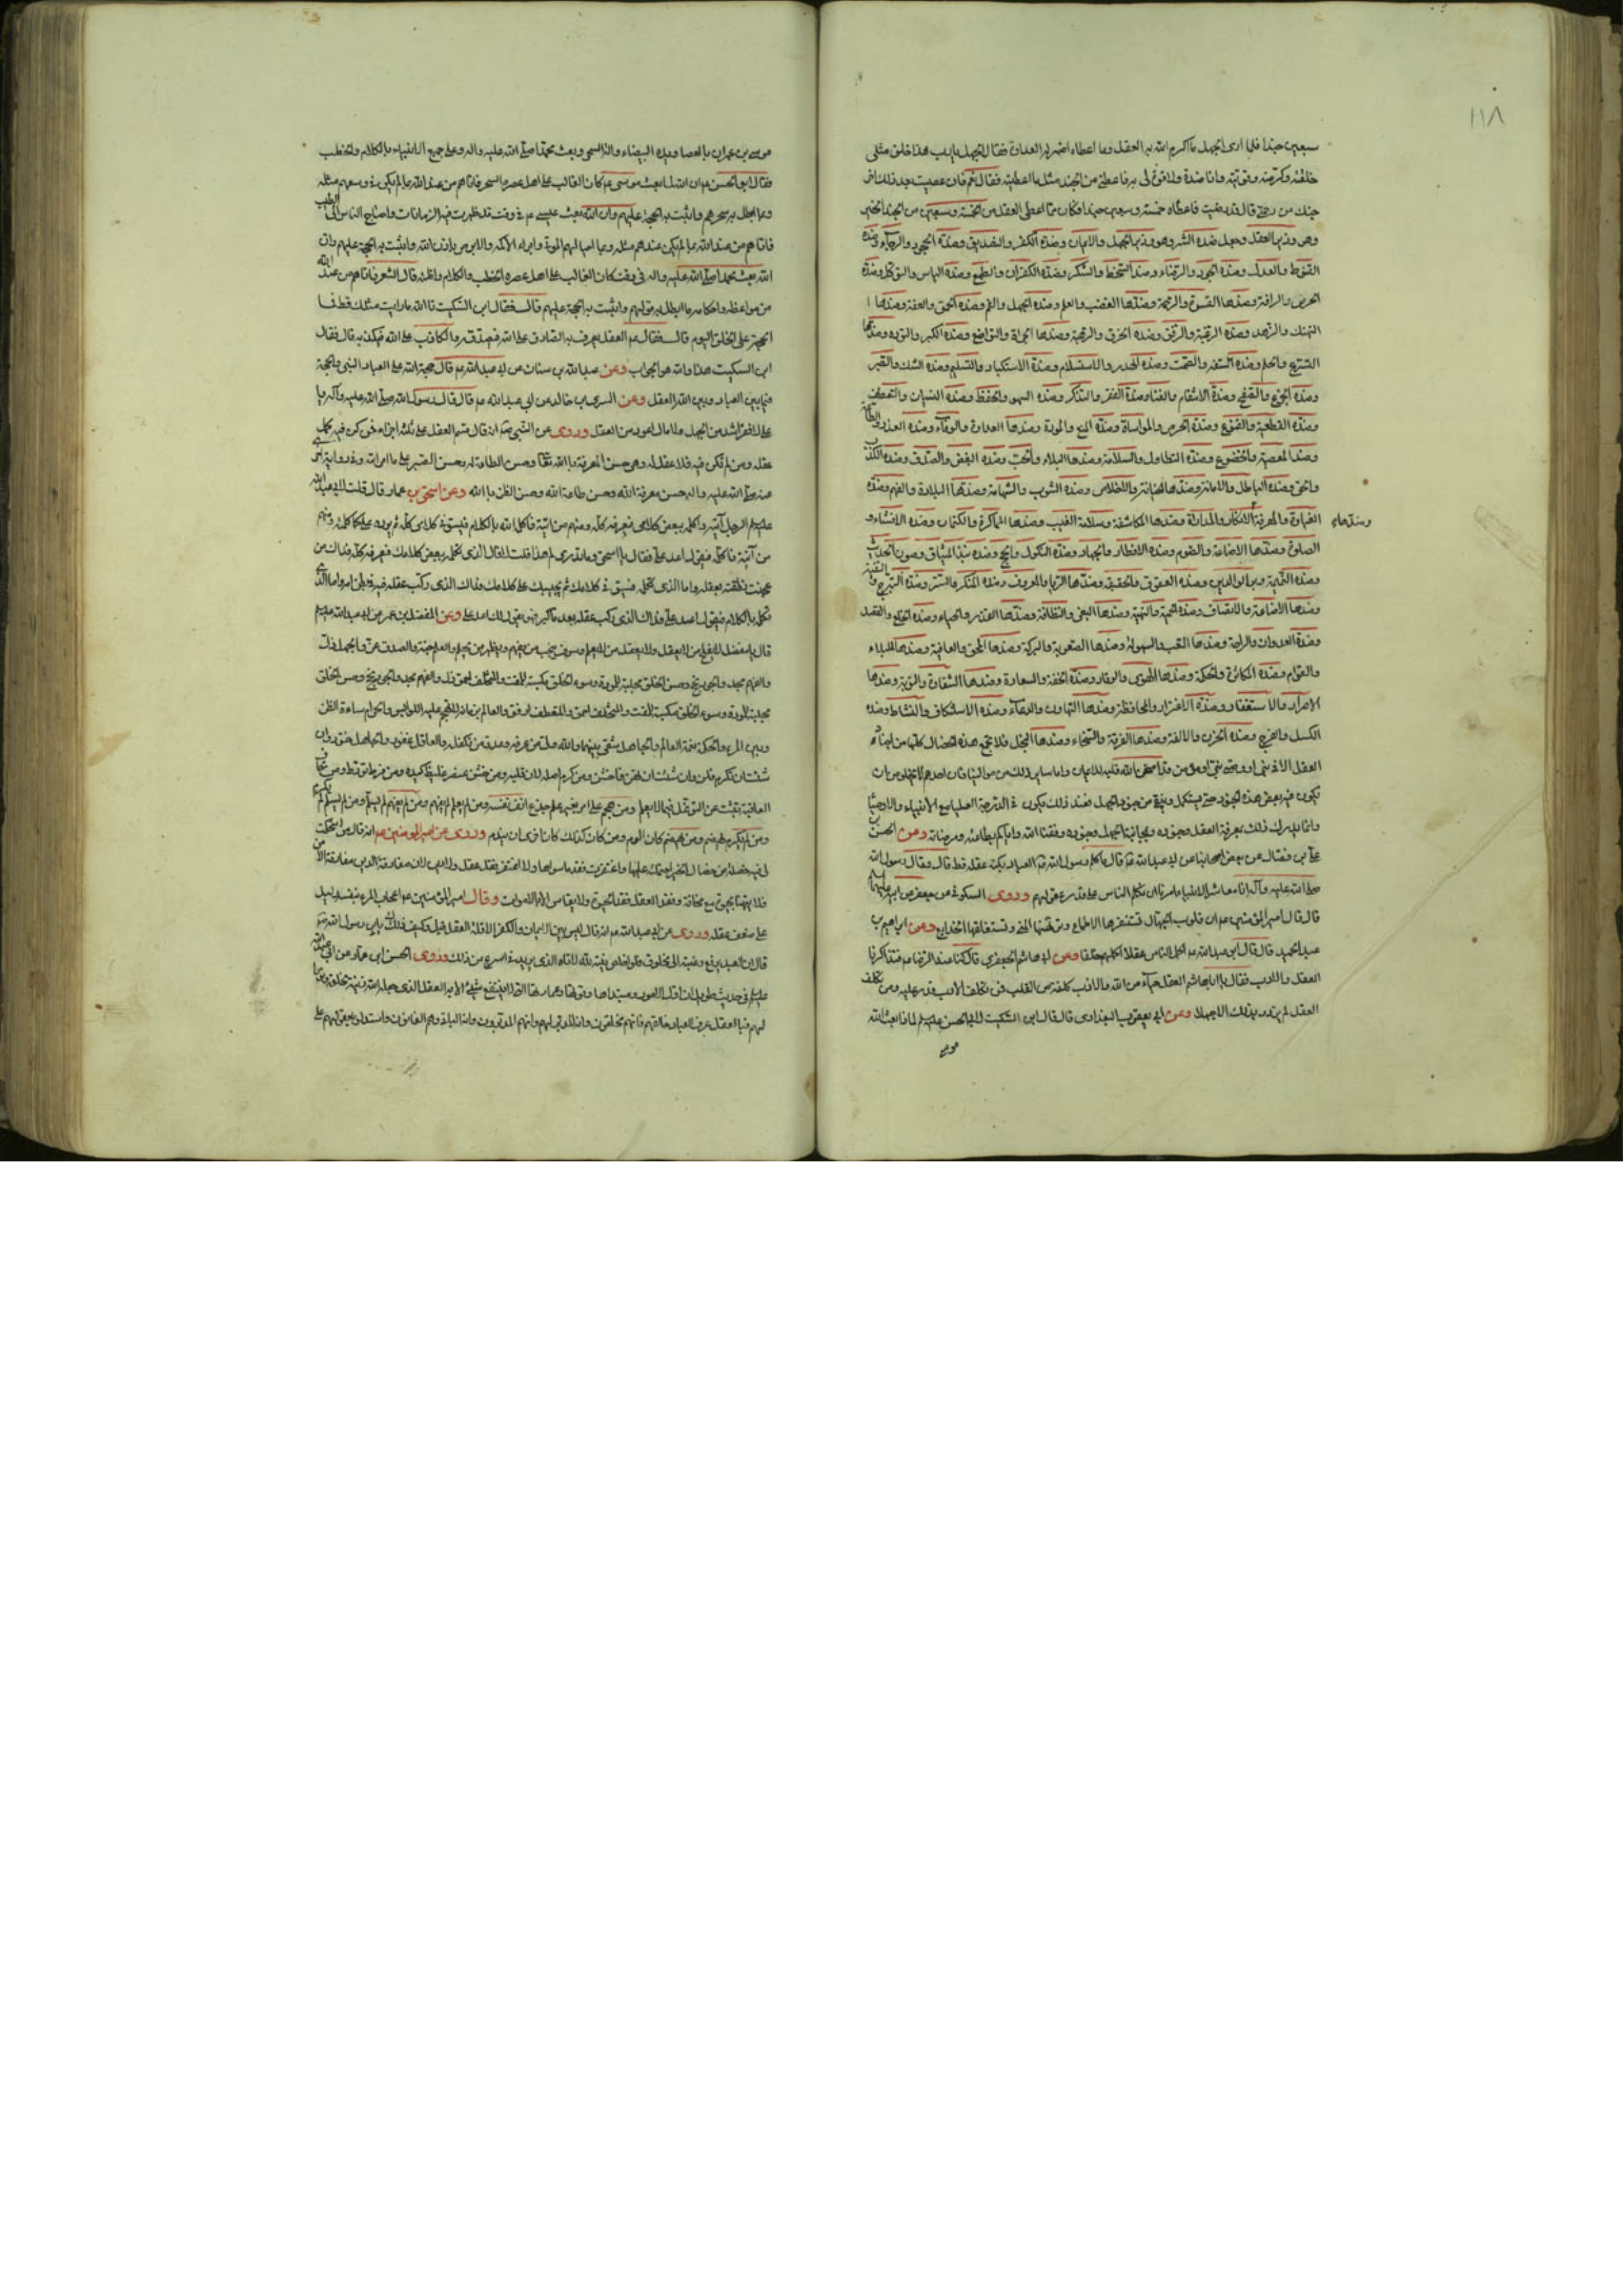 ١١٨
سبعين جندا فلما راى الجهل ما اكرم الله به العقل وما اعطاه اضمر له العداوة فقال الجهل يا رب هذا خلق مثلى
خلقته وكرمته وقويته وانا ضده ولا قوة لى به فاعطنى من الجند مثل ما اعطيته فقال نعم فان عصيت بعد ذلك اخر
جتك من رحمتى قال قد رضيت فاعطاه خمسة وسبعين جندا فكان مما اعطى العقل من الخمسة وسبعين من الجند الخير
وهو وزير العقل وجعل ضده الشر وهو وزير الجهل والايمان وضده الكفر والتصديق وضده الجحود والرجاء وضده
القنوط والعدل وضده الجور والرضاء وضده السخط والشكر وضده الكفران والطمع وضده الياس والتوكل وضده
الحرص والرافة وضدها القسوة والرحمة وضدها الغضب والعلم وضده الجهل والفهم وضده الحمق والعفة وضدها ا
التهتك والزهد وضده الرغبة والرفق وضده الخرق والرهبة وضدها الجراة والتواضع وضده الكبر والتؤدة وضدها
التسرع والحلم وضده السفه والصمت وضده الهذر والاستسلام وضده الاستكبار والتسليم وضده الشك والصبر
وضده الجزع والصفح وضده الانتقام والغناء وضده الفقر والتذكر وضده السهو والحفظ وضده النسيان والتعطف
وضده القطيعة والقنوع وضده الحرص والمواساة وضده المنع والمودة وضدها العداوة والوفاء وضده الغدر والطاعة
وضدها المعصية والخضوع وضده التطاول والسلامة وضدها البلاء والحب وضده البغض والصدق وضده الكذب
والحق وضده الباطل والامانة وضدها الخيانة والاخلاص وضده الشوب والشهامة وضدها البلادة والفهم وضده
الغباوة والمعرفة الانكار والمداراة وضدها المكاشفة وسلامة الغيب وضدها المماكرة والكتمان وضده الافشاء و
وضدها
الصلوة وضدها الاضاعة والصوم وضده الافطار والجهاد وضده النكول والحج وضده نبذ الميثاق وصون الحديث
وضده النميمة وبر الوالدين وضده العقوق والحقيقة وضدها الريا والمعروف وضده المنكر والستر وضده التبرج والتقية
وضدها الاضاعة والانصاف وضده الحمية والتهية وضدها البغى والنظافة وضدها القذر والحياء وضده الخلع والقصد
وضده العدوان والراحة وضدها التعب والسهولة وضدها الصعوبة والبركة وضدها المحق والعافية وضدها البلاء
والقوام وضده المكاثرة والحكمة وضدها الهوى والوقار وضده الخفة والسعادة وضدها الشقاوة والتوبة وضدها
الاصرار والاستغفار وضده الاغترار والمحافظة وضدها التهاون والدعاء وضده الاستنكاف والنشاط وضده
الكسل والفرح وضده الحزن والالفة وضدها الفرقة والسخاء وضدها البخل فلا تجتمع هذه الخصال كلها من اجناد
العقل الا فى نبى او وصى نبى او مؤمن قد امتحن الله قلبه للايمان واما ساير ذلك من موالينا فان احدهم لا يخلو من ان
يكون فيه بعض هذه الجنود حتى يستكمل وينقى من جنود الجهل فعند ذلك يكون فى الدرجة العليا مع الانبياء والاوصيا
وانما يدرك ذلك بمعرفة العقل وجنوده ومجانبة الجهل وجنوده وفقنا الله واياكم لطاعته ومرضاته وعن الحسن بن
على بن فضال عن بعض اصحابنا عن ابى عبد الله عم قال ما كلم رسول الله صم العباد بكنه عقله قط قال وقال رسول الله
صلى الله عليه وآله انا معاشر الانبياء امرنا ان نكلم الناس على قدر عقولهم وروى السكونى عن جعفر عن ابيه عليهما
قال قال امير المؤمنين عم ان قلوب الجهال تستفزها الاطماع وترتهنها المنى وتستعلقها الخدايع وعن ابراهيم بن
عبد الحميد قال قال ابو عبد الله عم اكمل الناس عقلا احسنهم خلقا وعن ابى هاشم الجعفرى قال كنا عند الرضا عم فتذاكرنا
العقل والادب فقال يا ابا هاشم العقل حباء من الله والادب كلفة من القلب فمن تكلف الادب قدر عليه ومن تكلف
العقل لم يزدد بذلك الا جهلا وعن ابى يعقوب البغدادى قال قال ابن السكيت لابى الحسن عليه السلم لماذا بعث الله
موسى
موسى بن عمران بالعصا ويده البيضاء والة السحر وبعث محمدا صلى الله عليه واله وعلى جميع الانبياء بالكلام والخطب
فقال ابو الحسن عم ان الله لما بعث موسى عم كان الغالب على اهل عصره السحر فاتاهم من عند الله بما لم يكن فى وسعهم مثله
وما ابطل به سحرهم واثبت به الحجة عليهم وان الله بعث عيسى عم فى وقت قد ظهرت فيه الزمانات واحتاج الناس الى الطب
فاتاهم من عند الله بما لم يكن عندهم مثله وبما احيا لهم الموتى وابراء الاكمه والابرص باذن الله واثبت به الحجة عليهم وان
الله بعث محمدا صلى الله عليه واله فى وقت كان الغالب على اهل عصره الخطب والكلام واظنه قال الشعر فاتاهم من عند الله
من مواعظه واحكامه ما ابطل به قولهم واثبت به الحجة عليهم قال فقال ابن السكيت تالله ما رايت مثلك قط فما
الحجة على الخلق اليوم قال فقال عم العقل يعرف به الصادق على الله فيصدقه والكاذب على الله فيكذبه قال فقال
ابن السكيت هذا والله هو الجواب وعن عبد الله بن سنان عن ابى عبد الله عم قال حجة الله على العباد النبى والحجة
فيما بين العباد وبين الله العقل وعن السرى بن خالد عن ابى عبد الله عم قال قال رسول الله صلى الله عليه وآله يا
على لا فقر اشد من الجهل ولا مال اعود من العقل وروى عن النبى صم انه قال قسم العقل على ثلثة اجزاء فمن كن فيه كمل
عقله ومن لم تكن فيه فلا عقل له وهى حسن المعرفة بالله تعا وحسن الطاعة له وحسن الصبر على ما امر الله وفى رواية اخرى
عنه صلى الله عليه واله حسن معرفة الله وحسن طاعة الله وحسن الظن بالله وعن اسحق بن عمار قال قلت لابى عبد الله
عليه السلم الرجل آتيه واكلمه ببعض كلامى فيعرفه كله ومنهم من اتيه فاكلمه بالكلام فيستوفى كلامى كله ثم يرده على كما كلمته ومنهم
من آتيه فاكلمه فيقول اعد على فقال يا اسحق وما تدرى لم هذا قلت لا قال الذى تكلمه ببعض كلامك فيعرفه كله فذاك من
عجنت نطفته بعقله واما الذى تكلمه فيستوفى كلامك ثم يجيبك على كلامك فذاك الذى ركب عقله فيه فى بطن امه واما الذى
تكلمه بالكلام فيقول اعد على فذاك الذى ركب عقله بعد ما كبر فهو يقول لك اعد على وعن المفضل بن عمر عن ابى عبد الله عليه السلم
قال يا مفضل لا يفلح من لا يعقل ولا يعقل من لا يعلم وسوف ينجب من يفهم ويظفر من يحلم والعلم جنة والصدق عز والجهل ذل
والفهم مجد والجود نجح وحسن الخلق مجلبة للمودة
وبين المرء والحكمة نعمة العالم والجاهل شقى بينهما والله ولى من عرفه وعدو من تكلفه والعاقل غفور والجاهل ختور وان
شئت ان تكرم فلن وان شئت ان تهن فاخشن ومن كرم اصله لان قلبه ومن خشن عنصره غلظ كبده ومن فرط تورط ومن خاف
العاقبة تثبت عن التوغل فيما لا يعلم ومن هجم على امر بغير علم جدع انف نفسه ومن لم يعلم لم يفهم ومن لم يفهم لم يسلم ومن لم يسلم لم يكرم
ومن لم يكرم يهضم ومن يهضم كان الوم ومن كان كذلك كان احرى ان يندم وروى عن امير المؤمنين عم انه قال من استحكمت
لى فيه خصلة من خصال الخير احتملته عليها واغتفرت فقد ما سواها ولا اغتفر فقد عقل ولا دين لان مفارقة الدين مفارقة الامن
فلا يتهنا بحيوة مع مخافة وفقد العقل فقد الحيوة ولا يقاس الا بالاموات وقال امير المؤمنين عم اعجاب المرء بنفسه دليل
على ضعف عقله وروى عن ابى عبد الله عم انه قال ليس بين الايمان والكفر الا قلة العقل قيل وكيف ذلك يابن رسول الله صم
قال ان العبد يرفع رغبته الى مخلوق فلو اخلص نيته لله لاتاه الذى يريد فى اسرع من ذلك وروى الحسن بن عمار عن ابى عبد الله
عليه السلم فى حديث طويل ان اول الامور ومبتداها وقوتها وعمارتها التى لا ينتفع شىء الا به العقل الذى جعله الله زينة لخلقه ونورا
لهم فبالعقل عرف العباد خالقهم وانهم مخلوقون وانه المدبر لهم وانهم المدبرون وانه الباقى وهم الفانون واستدلوا بعقولهم على